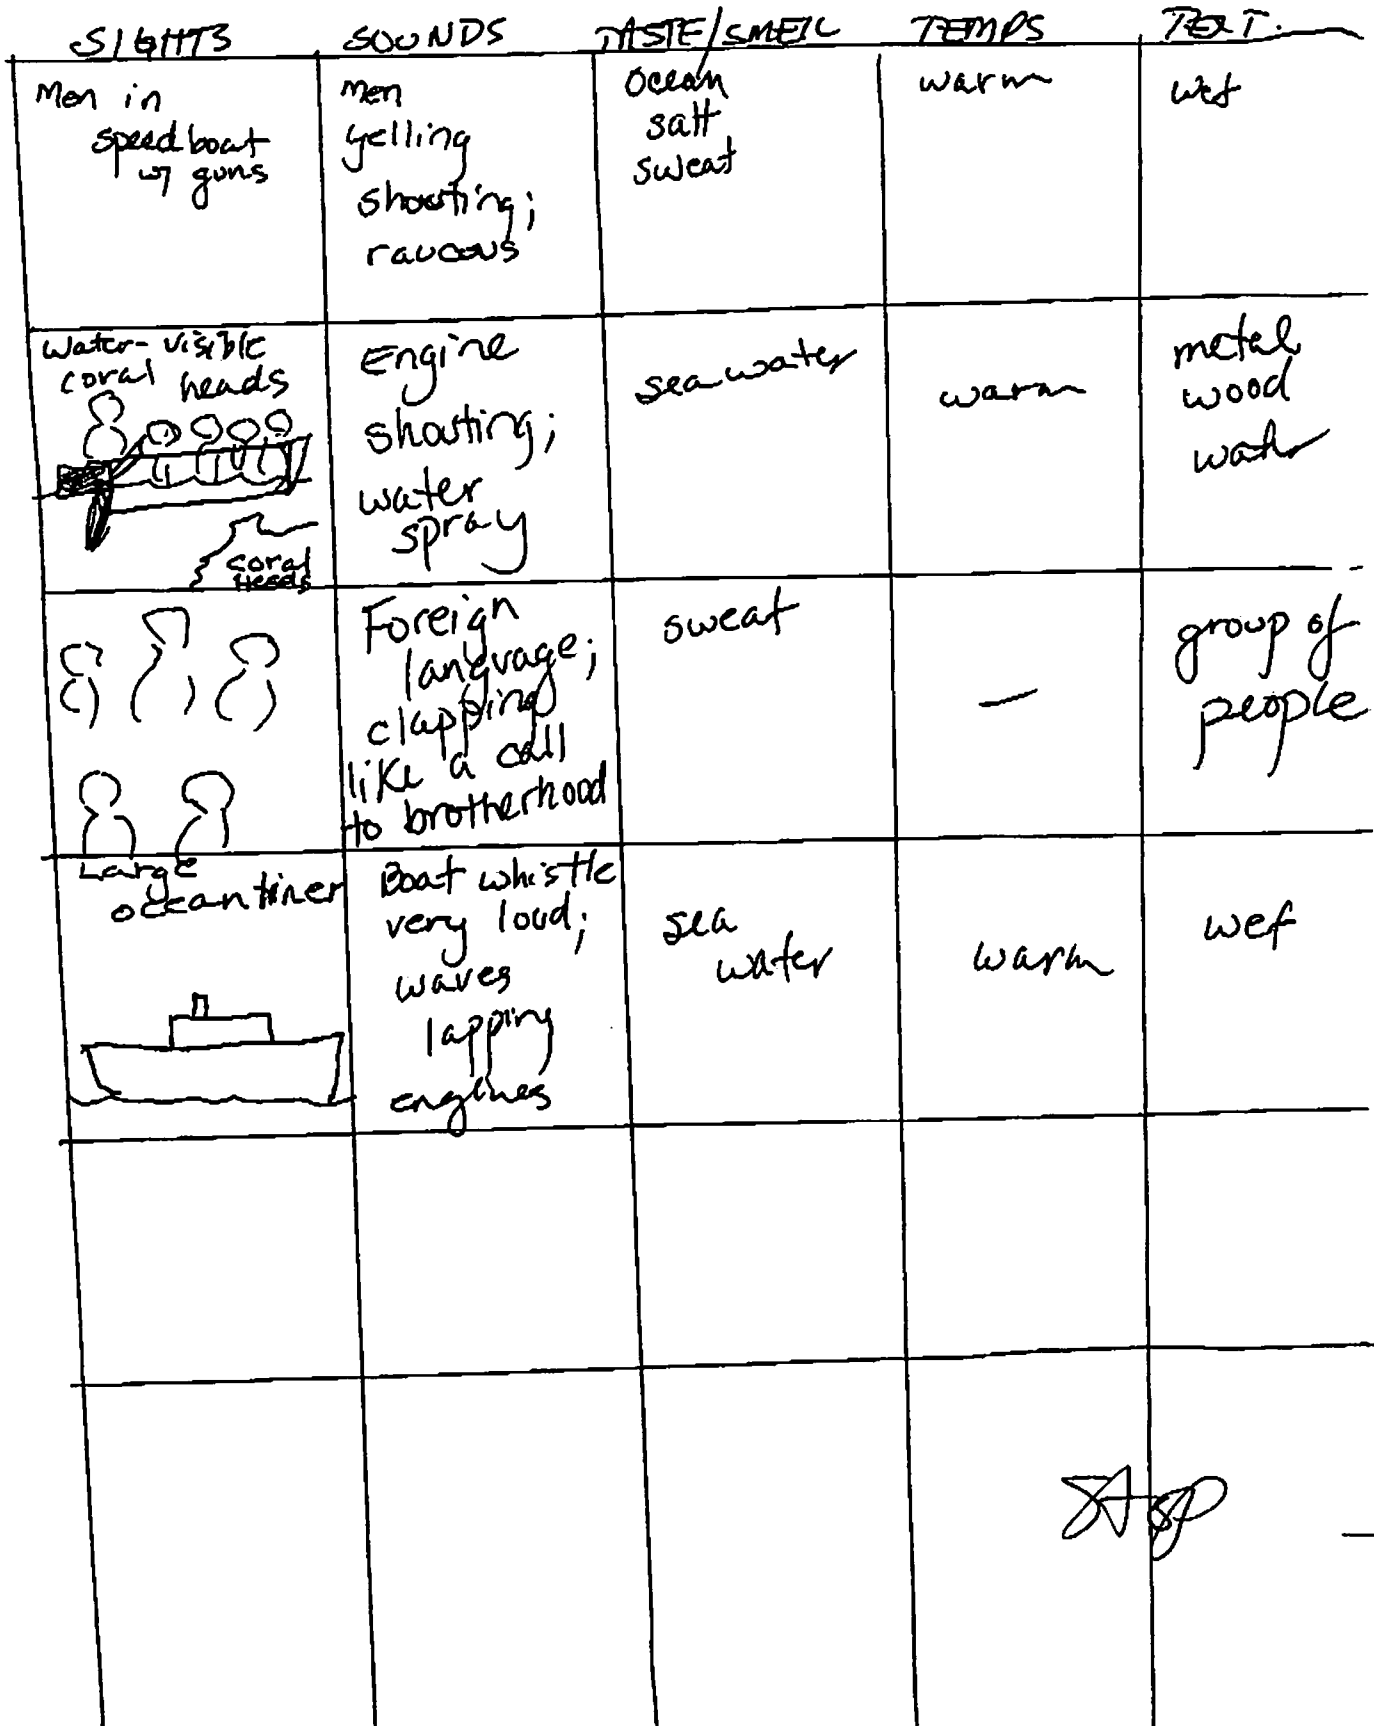 SIGHTS SOUNDS TASTE/SMELL TEMPS TEXT.
Men in
speedboat
w/ guns
men
yelling
shouting;
raucous
ocean
salt
sweat
warm
wet
water-visible
coral heads
coral
heads
Engine
shouting;
water
spray
sea water
warm
metal
wood
water
Foreign
language;
clapping
like a call
to brotherhood
sweat
—
group of
people
Large
ocean liner
Boat whistle
very loud;
waves
lapping
engines
sea
water
warm
wet